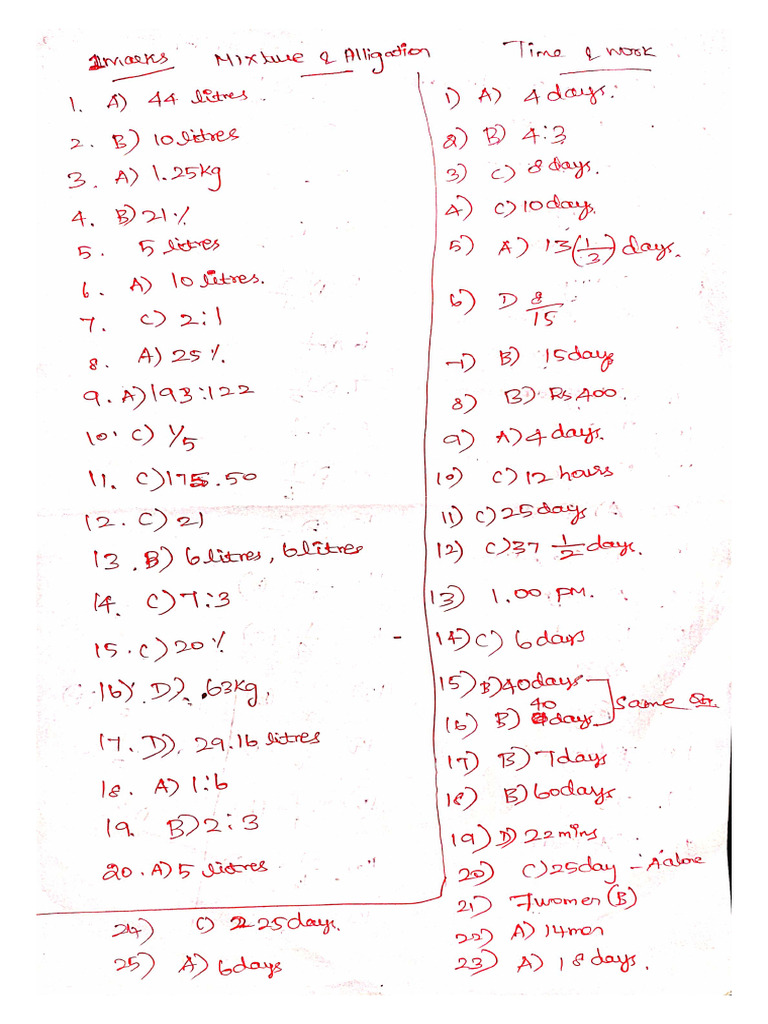 1marks Mixture & Alligation
1. A) 44 litres
2. B) 10 litres
3. A) 1.25kg
4. B) 21%
5. 5 litres
6. A) 10 litres.
7. C) 2:1
8. A) 25%
9. A) 193:122
10. C) 1/5
11. C) 175.50
12. C) 21
13. B) 6 litres, 6 litres
14. C) 7:3
15. C) 20%
16) D) .63kg
17. D) 29.16 litres
18. A) 1:6
19. B) 2:3
20. A) 5 litres
Time & work
1) A) 4 days.
2) B) 4:3
3) C) 8 days.
4) C) 10 days.
5) A) 13(1/3) days.
6) D 8/15
7) B) 15 days
8) B) Rs 400.
9) A) 4 days.
10) C) 12 hours
11) C) 25 days
12) C) 37 1/2 days.
13) 1.00. PM.
14) C) 6 days
15) B) 40 days
16) B) 40 days
Same
17) B) 7 days
18) B) 60 days
19) D) 22 mins
20) C) 25 day - A alone
21) 7 women (B)
22) A) 14 men
23) A) 18 days.
24) C) 25 days.
25) A) 6 days